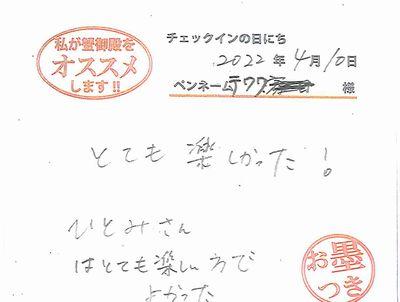 私が蟹御殿を
オススメ
します!!
チェックインの日にち
2022年4月10日
ペンネーム 様
とても楽しかった!
ひとみさん
はとても楽しい方で
よかった
お墨
つき